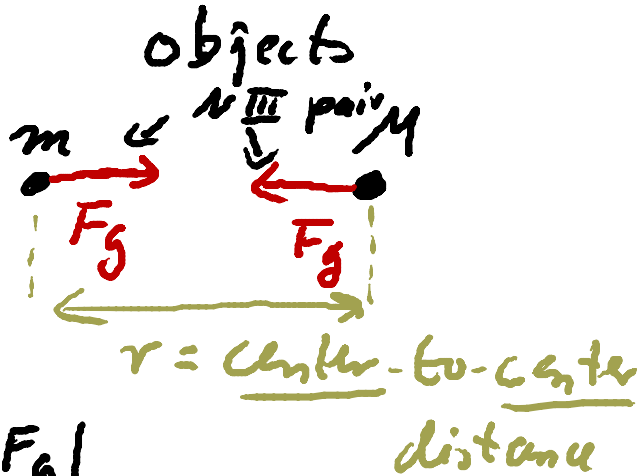 objects
N III pair
m M
Fg Fg
r = center-to-center
distance
Fg|